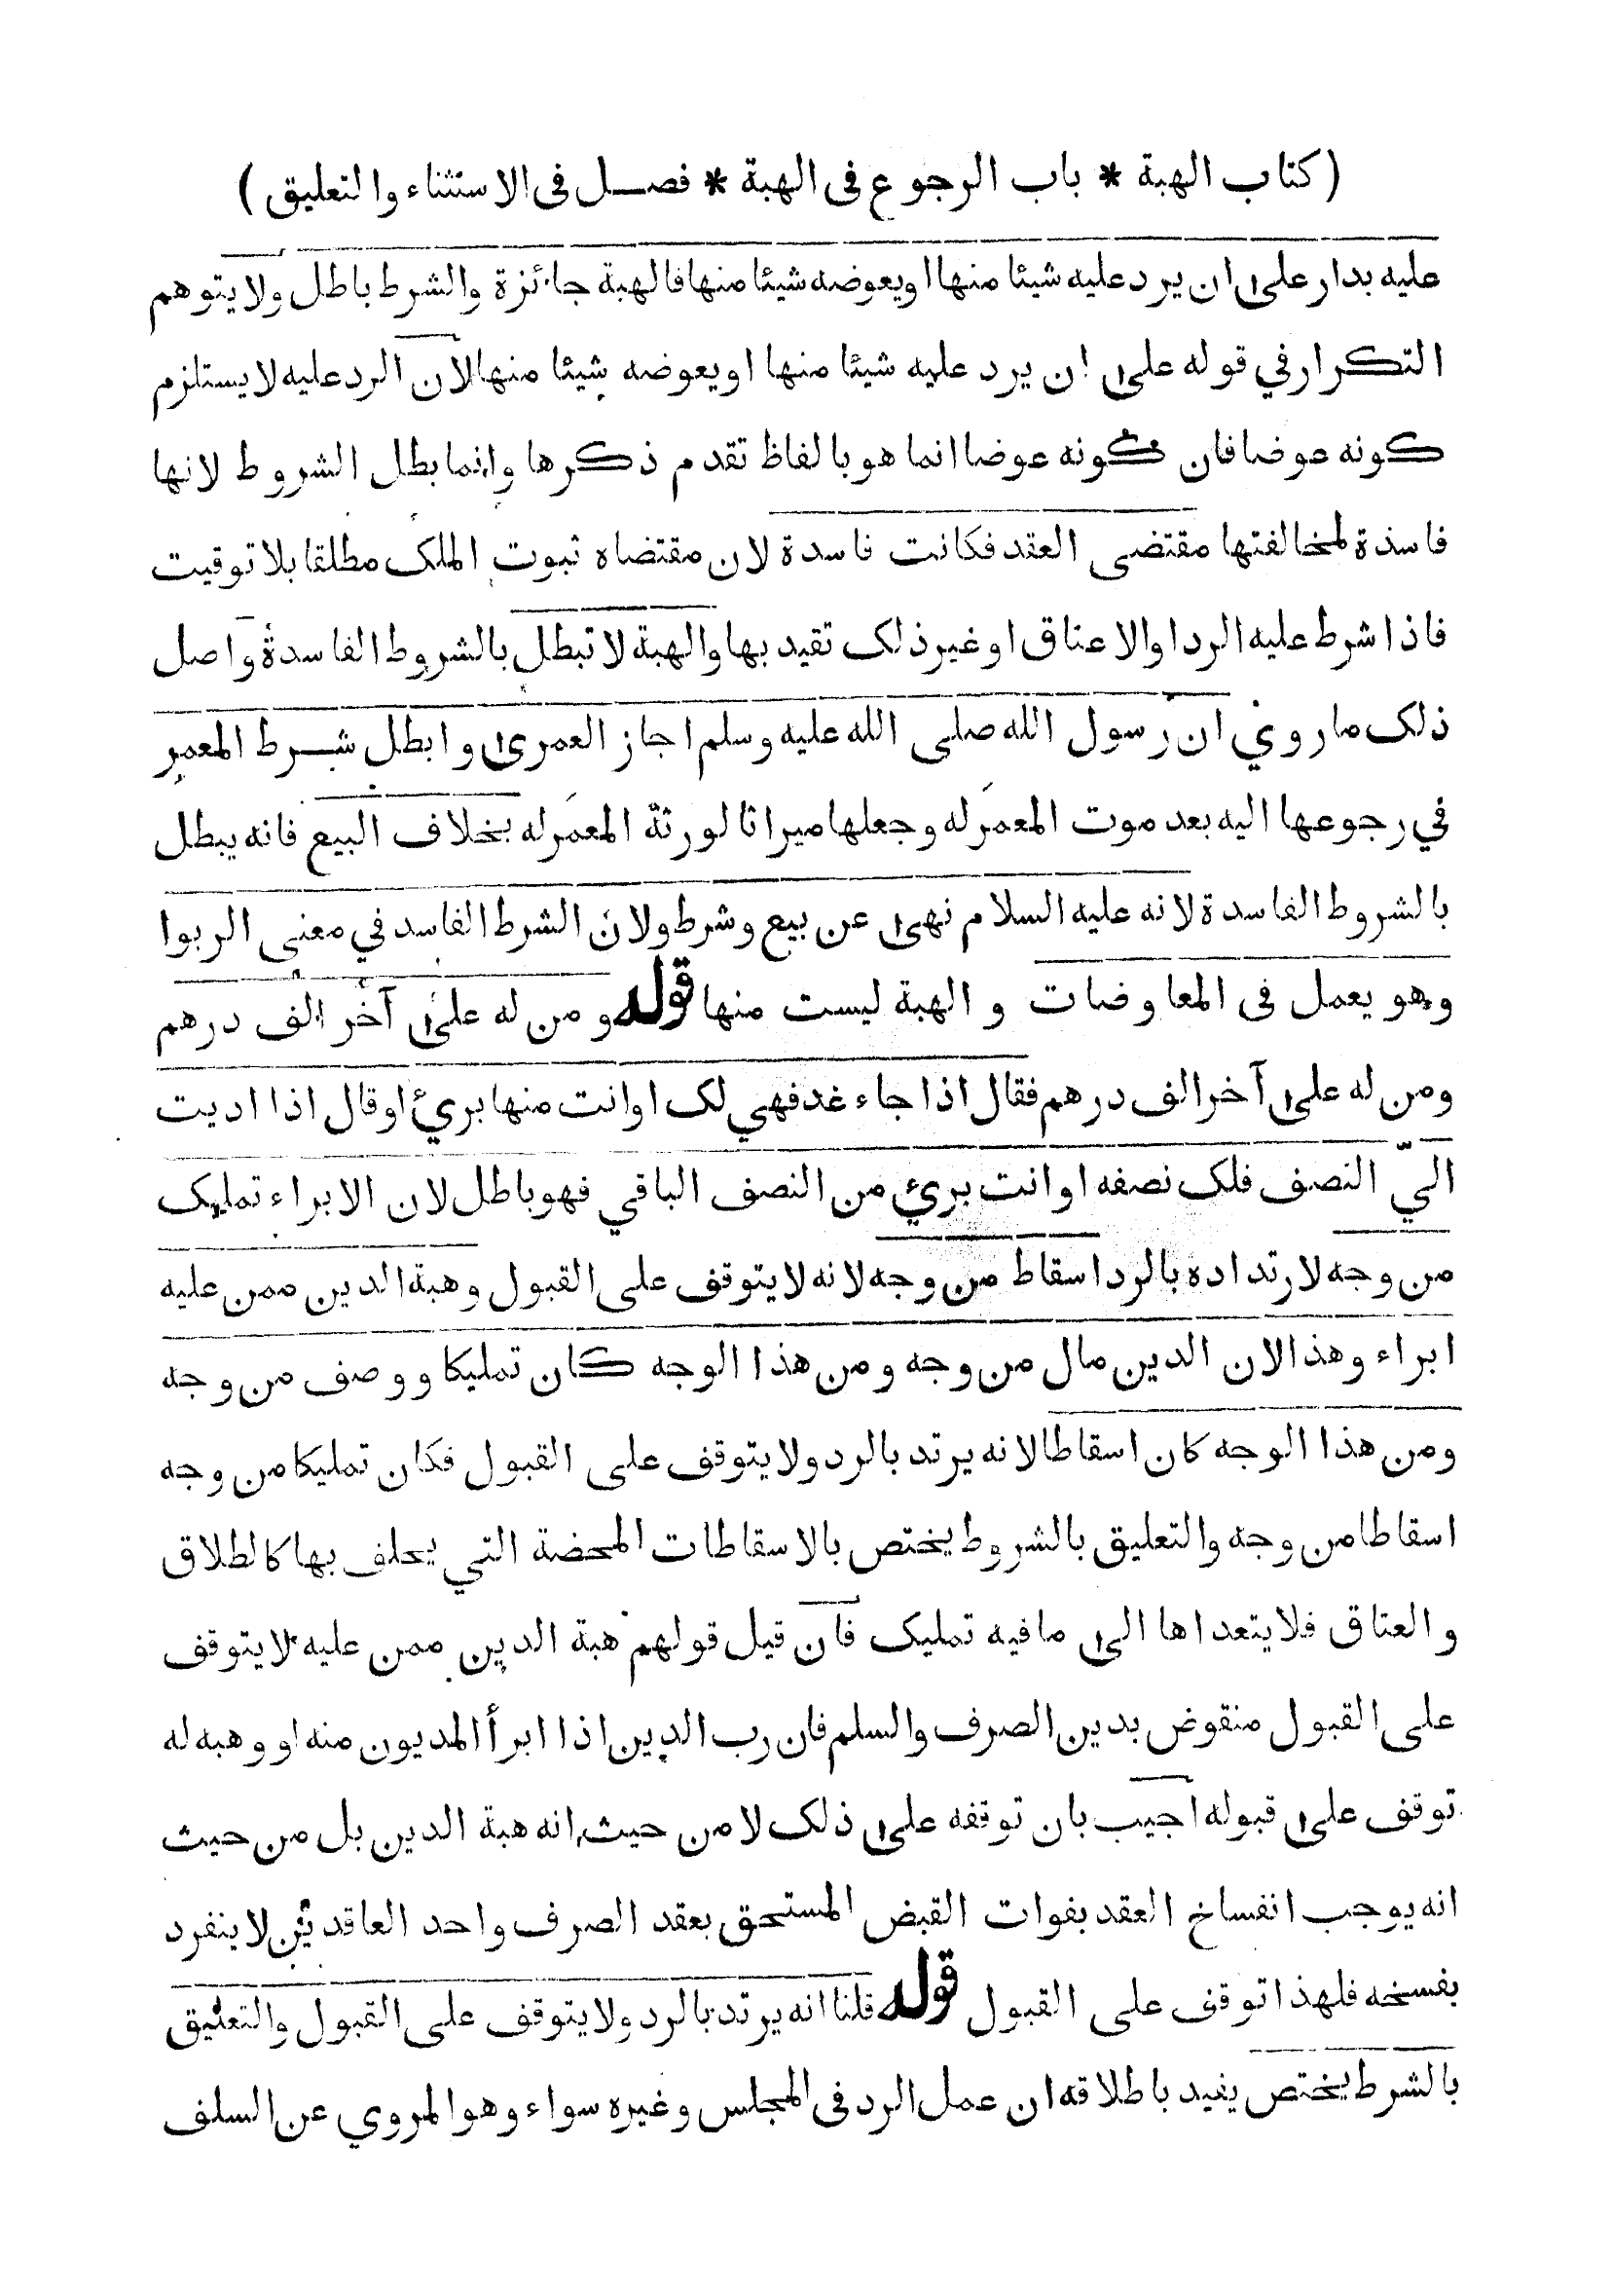 ( كتاب الهبة * باب الرجوع فى الهبة * فصل فى الاستثناء والتعليق )
عليه بدار على ان يرد عليه شيئا منها او يعوضه شيئا منها فالهبة جائزة والشرط باطل ولا يتوهم
التكرار في قوله على ان يرد عليه شيئا منها او يعوضه شيئا منها لان الرد عليه لا يستلزم
كونه عوضا فان كونه عوضا انما هو بالفاظ تقدم ذكرها وانما بطل الشروط لانها
فاسدة لمخالفتها مقتضى العقد فكانت فاسدة لان مقتضاه ثبوت الملك مطلقا بلا توقيت
فاذا شرط عليه الرد او الاعتاق او غير ذلك تقيد بها والهبة لا تبطل بالشروط الفاسدة واصل
ذلك ما روي ان رسول الله صلى الله عليه وسلم اجاز العمرى وابطل شرط المعمر
في رجوعها اليه بعد موت المعمر له وجعلها ميراثا لورثة المعمر له بخلاف البيع فانه يبطل
بالشروط الفاسدة لانه عليه السلام نهى عن بيع وشرط ولان الشرط الفاسد في معنى الربوا
وهو يعمل فى المعاوضات و الهبة ليست منها قوله ومن له على آخر الف درهم
ومن له على آخر الف درهم فقال اذا جاء غد فهي لك او انت منها بريئ او قال اذا اديت
اليّ النصف فلك نصفه او انت بريئ من النصف الباقي فهو باطل لان الابراء تمليك
من وجه لارتداده بالرد اسقاط من وجه لانه لا يتوقف على القبول وهبة الدين ممن عليه
ابراء وهذا لان الدين مال من وجه ومن هذا الوجه كان تمليكا ووصف من وجه
ومن هذا الوجه كان اسقاطا لانه يرتد بالرد ولا يتوقف على القبول فكان تمليكا من وجه
اسقاطا من وجه والتعليق بالشروط يختص بالاسقاطات المحضة التي يحلف بها كالطلاق
والعتاق فلا يتعداها الى ما فيه تمليك فان قيل قولهم هبة الدين ممن عليه لا يتوقف
على القبول منقوض بدين الصرف والسلم فان رب الدين اذا ابرأ المديون منه او وهبه له
توقف على قبوله اجيب بان توقفه على ذلك لا من حيث انه هبة الدين بل من حيث
انه يوجب انفساخ العقد بفوات القبض المستحق بعقد الصرف واحد العاقدين لا ينفرد
بفسخه فلهذا توقف على القبول قوله قلنا انه يرتد بالرد ولا يتوقف على القبول والتعليق
بالشرط يختص يفيد باطلاقه ان عمل الرد فى المجلس وغيره سواء وهو المروي عن السلف